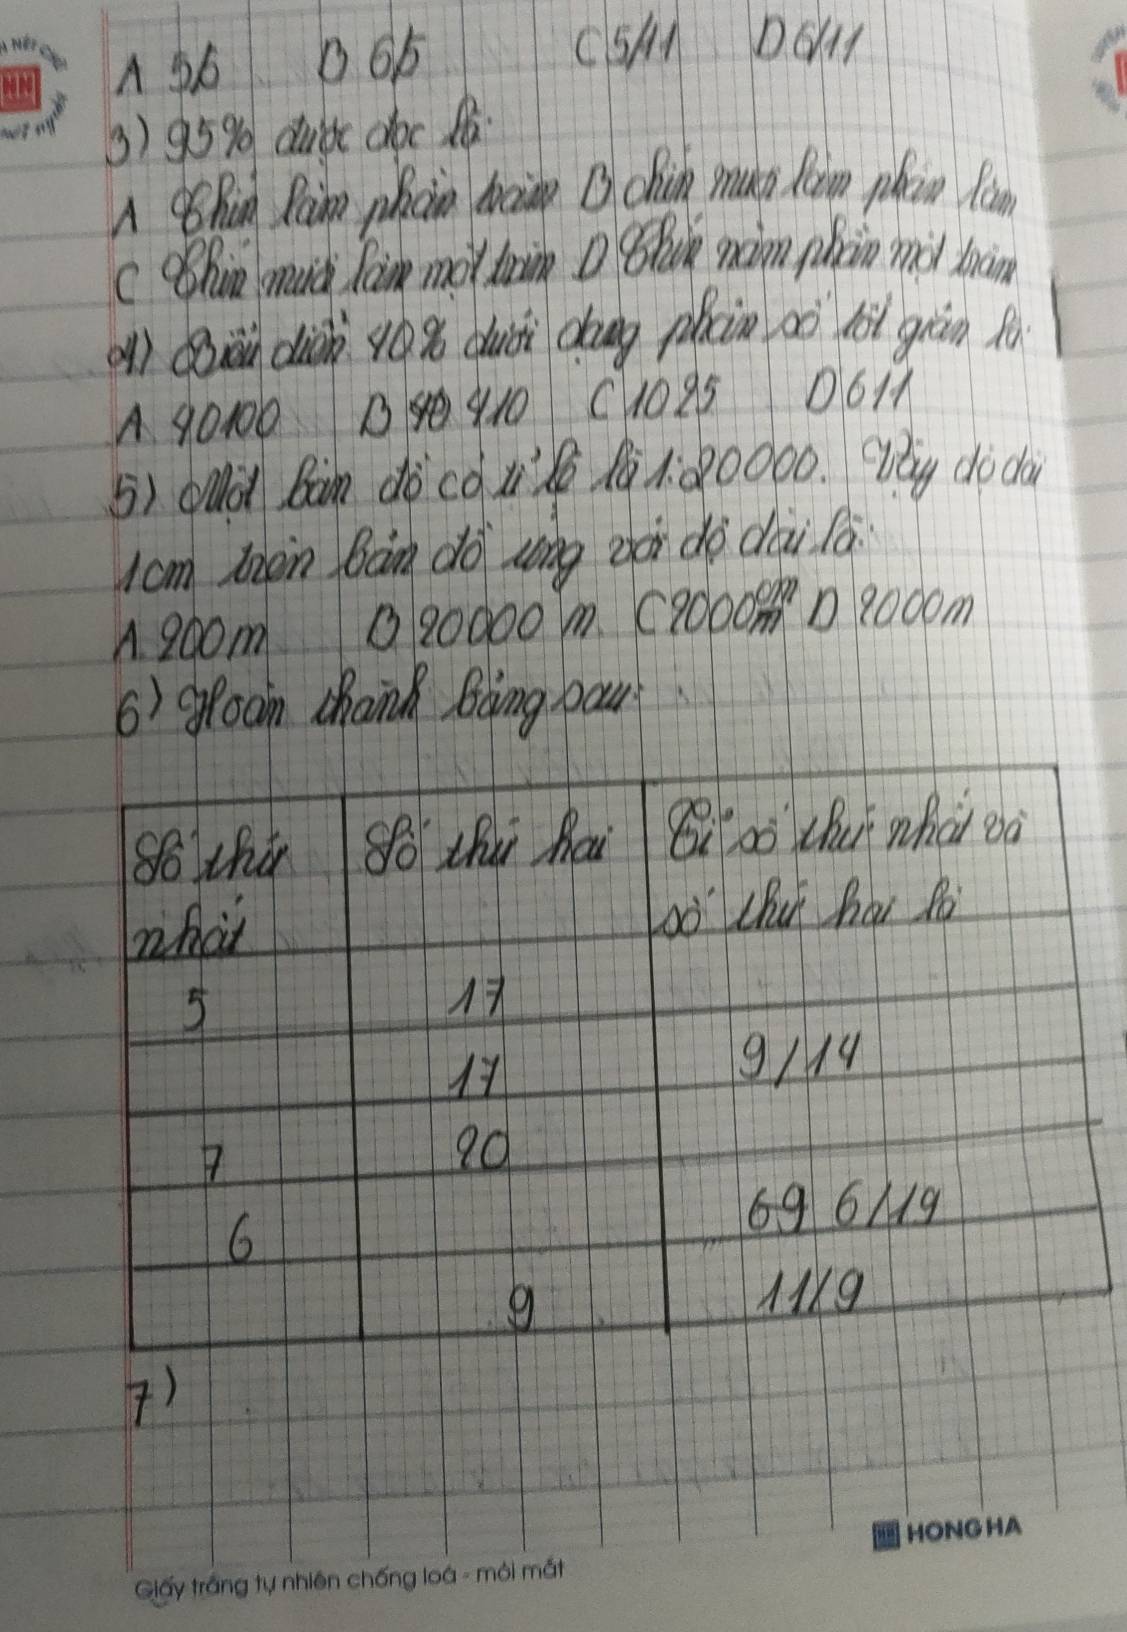 A 5/6 B 6/5 C 5/11 D 6/11
3) 95% được đọc là:
A Chín lăm phần trăm B chín mươi lăm phần lăm
C Chín mươi lăm một trăm D Chín năm phần một trăm
4) Biểu diễn 40% dưới dạng phân số tối giản là:
A 40100 B 410 C 1025 D 611
5) Một bản đồ có tỉ lệ là 1:20000. Vậy độ dài
1cm trên bản đồ ứng với độ dài là:
A. 200m B 20000 m C 2000cm D 2000m
6) Hoàn thành bảng sau:
Số thứ nhất Số thứ hai Tỉ số thứ nhất và
số thứ hai là
5 17
17 9/14
7 20
6 6/19
9 11/9
7)
HONG HA
Giấy trắng tự nhiên chống loá - mỏi mắt